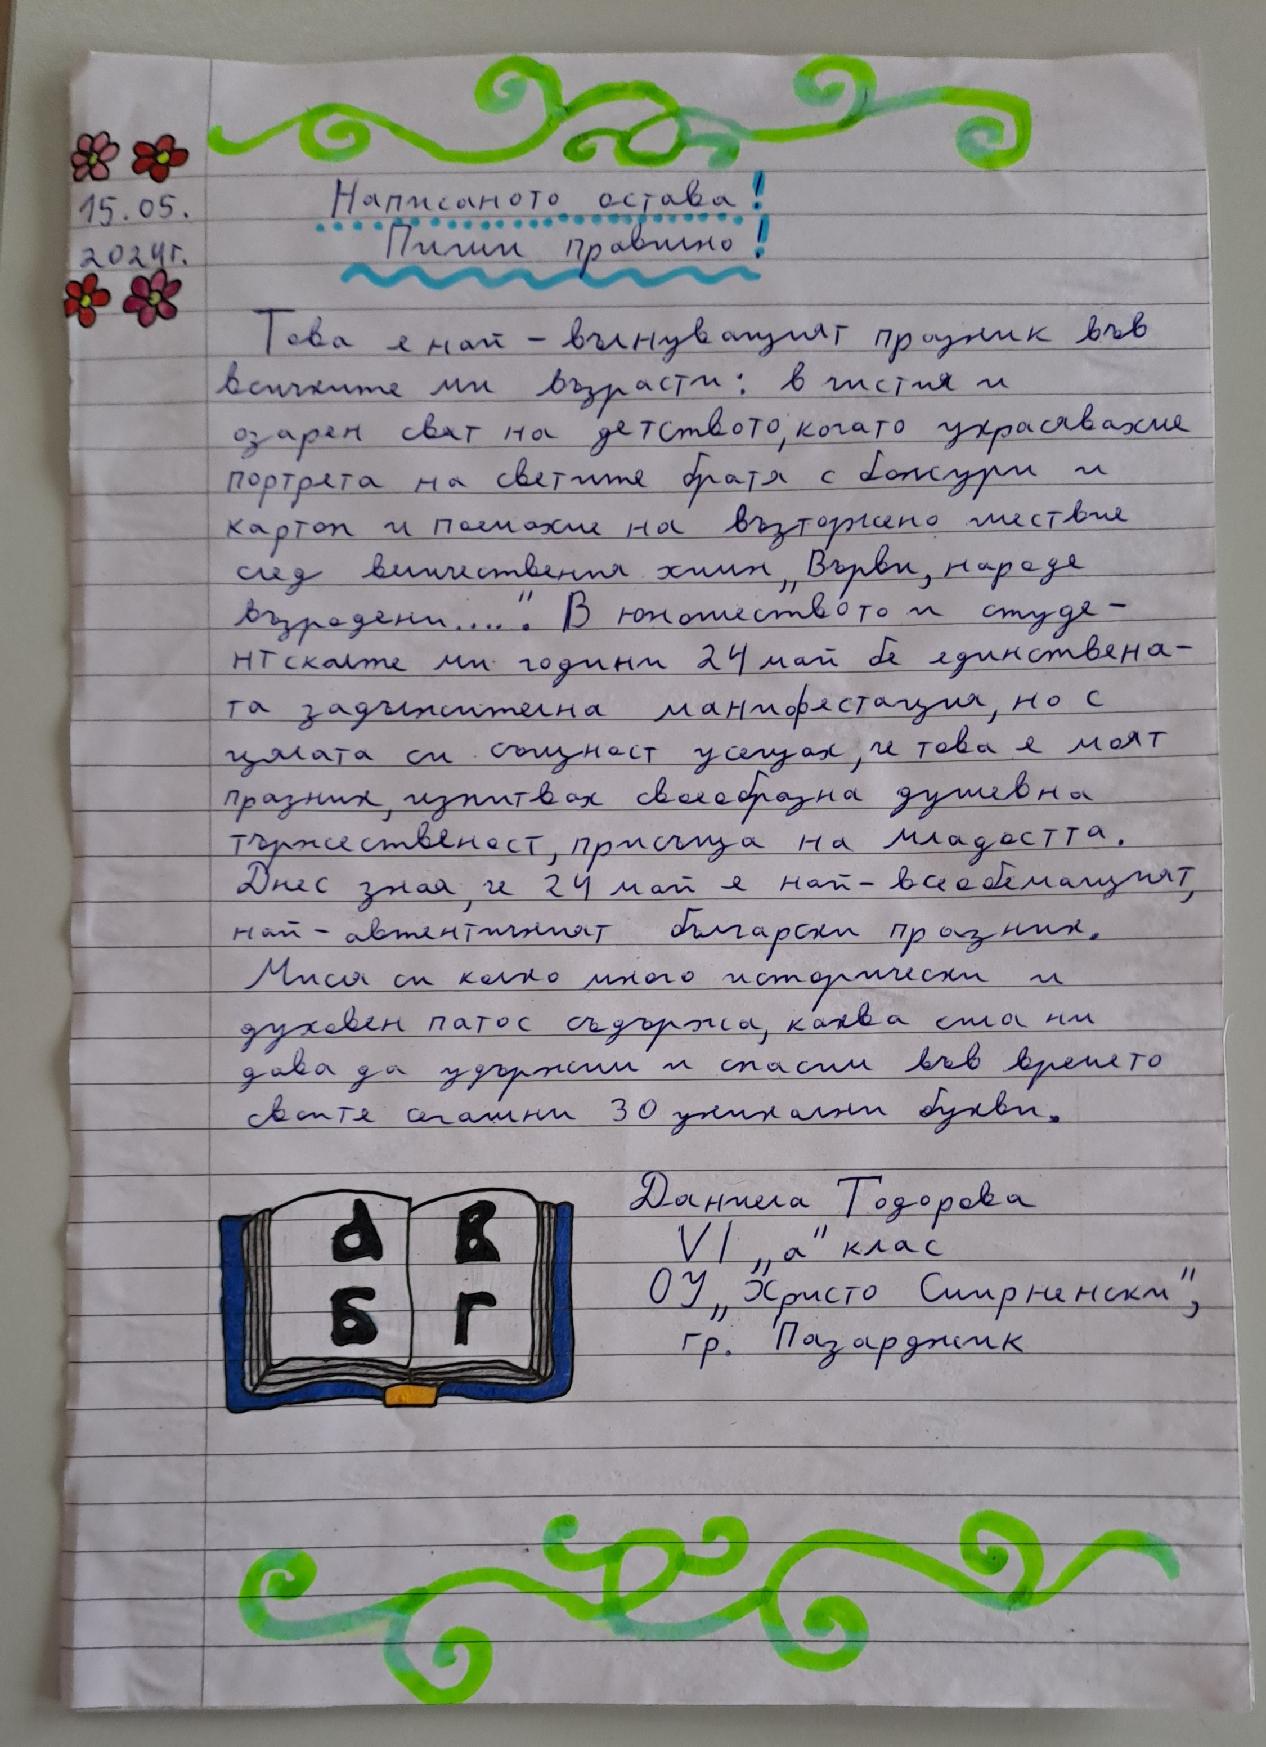 15.05.
2024г.
Написаното остава!
Пиши правилно!
Това е най-вълнуващият празник във
всичките ми възрасти: в чистия и
озарен свят на детството, когато украсявахме
портрета на светите братя с божури и
картон и поемахме на възторжено шествие
след величествения химн „Върви, народе
възродени....". В юношеството и студе-
нтските ми години 24 май бе единствена-
та задължителна манифестация, но с
цялата си същност усещах, че това е моят
празник, изпитвах своеобразна душевна
тържественост, присъща на младостта.
Днес зная, че 24 май е най-всеобемащият,
най-автентичният български празник.
Мисля си колко много исторически и
духовен патос съдържа, каква сила ни
дава да удържим и спасим във времето
своите сегашни 30 уникални букви.
Даниела Тодорова
VI „а" клас
ОУ „Христо Смирненски",
гр. Пазарджик
а в
б г